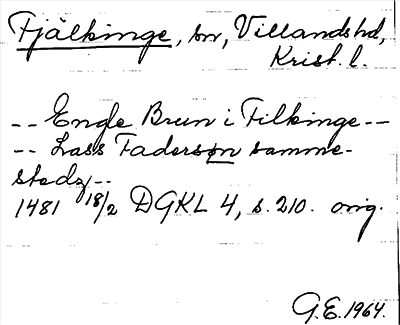 Fjälkinge, sn, Villandshd,
Krist. l.
-- Engle Brun i Filkinge --
-- Lass Faderson samme-
stedz --
1481 18/2 DGKL 4, s. 210. orig.
G.E. 1964.